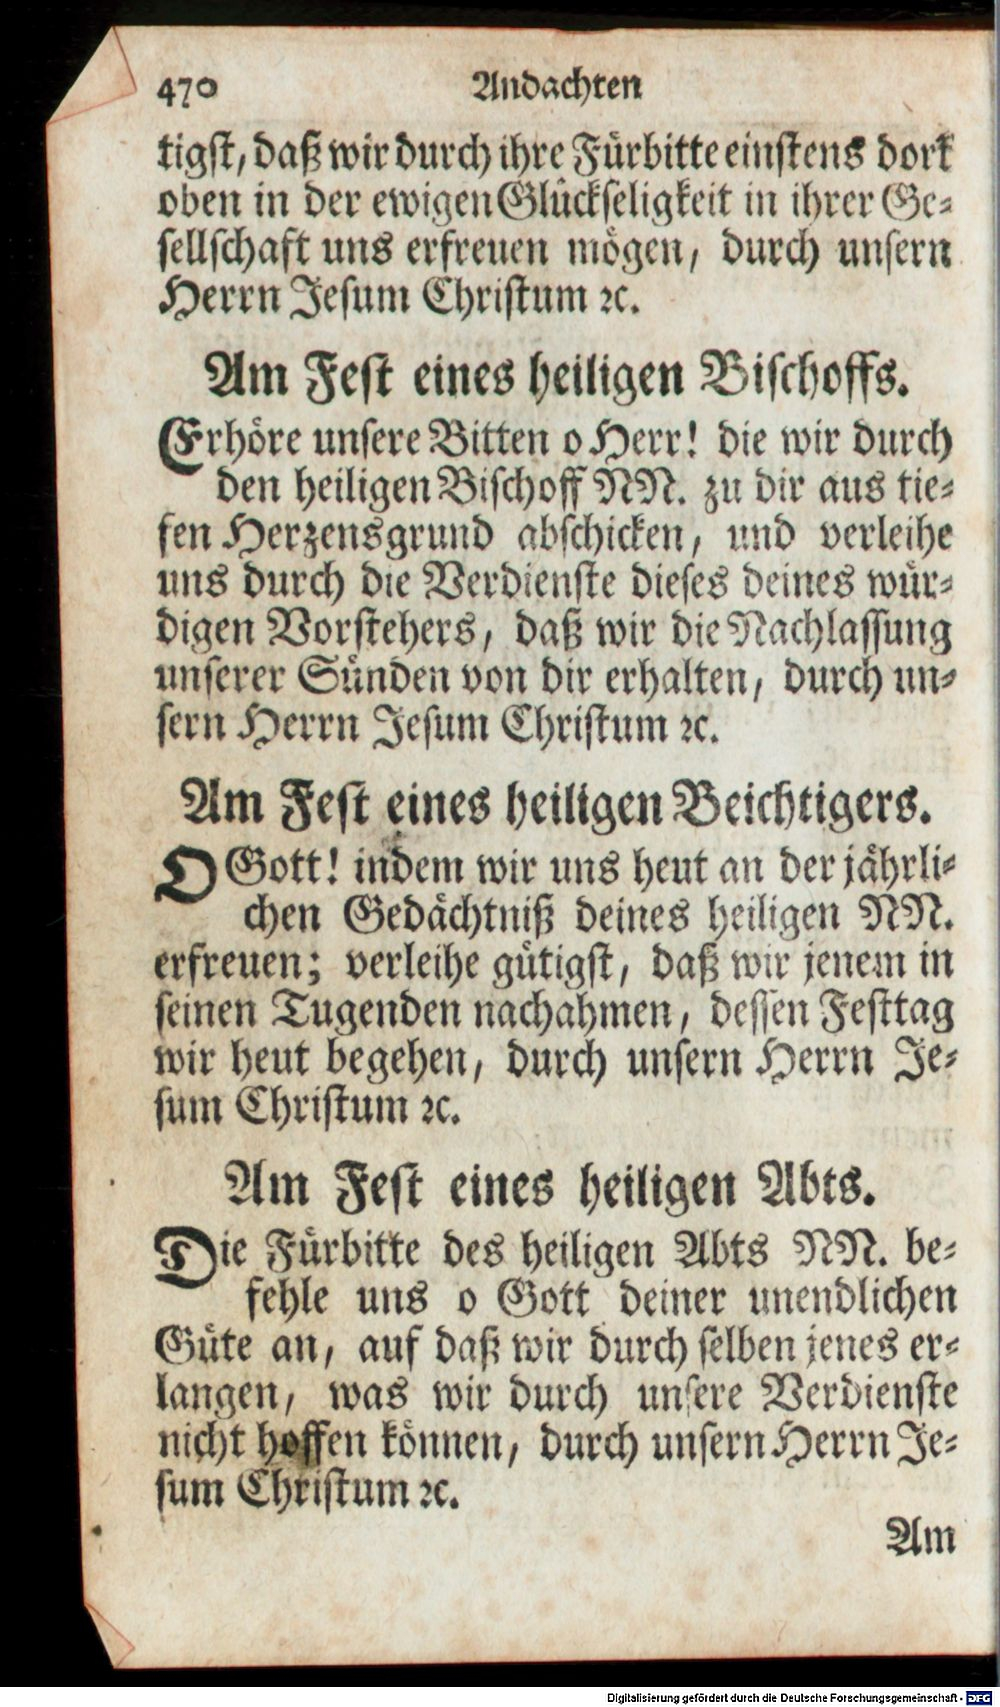 470 Andachten
tigst, daß wir durch ihre Fürbitte einstens dort
oben in der ewigen Glückseligkeit in ihrer Ge-
sellschaft uns erfreuen mögen, durch unsern
Herrn Jesum Christum ꝛc.
Am Fest eines heiligen Bischoffs.
Erhöre unsere Bitten o Herr! die wir durch
den heiligen Bischoff NN. zu dir aus tie-
fen Herzensgrund abschicken, und verleihe
uns durch die Verdienste dieses deines wür-
digen Vorstehers, daß wir die Nachlassung
unserer Sünden von dir erhalten, durch un-
sern Herrn Jesum Christum ꝛc.
Am Fest eines heiligen Beichtigers.
O Gott! indem wir uns heut an der jährli-
chen Gedächtniß deines heiligen NN.
erfreuen; verleihe gütigst, daß wir jenem in
seinen Tugenden nachahmen, dessen Festtag
wir heut begehen, durch unsern Herrn Je-
sum Christum ꝛc.
Am Fest eines heiligen Abts.
Die Fürbitte des heiligen Abts NN. be-
fehle uns o Gott deiner unendlichen
Güte an, auf daß wir durch selben jenes er-
langen, was wir durch unsere Verdienste
nicht hoffen können, durch unsern Herrn Je-
sum Christum ꝛc.
Am
Digitalisierung gefördert durch die Deutsche Forschungsgemeinschaft - DFG